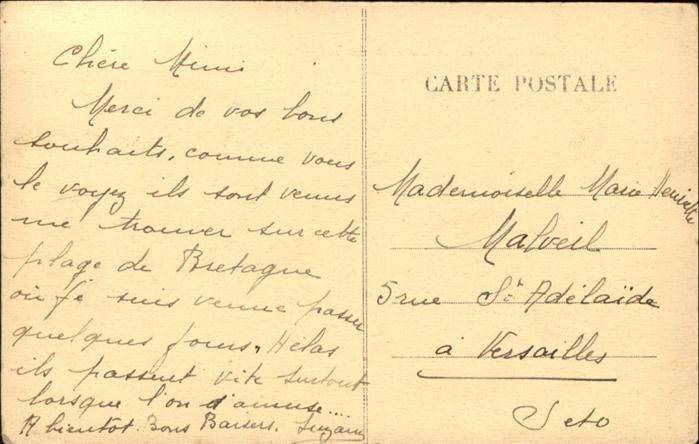 Chère Mimi
Merci de vos bons
souhaits, comme vous
le voyez ils sont venus
me trouver sur cette
plage de Bretagne
où je suis venue passer
quelques jours. Hélas
ils passent vite surtout
lorsque l'on s'amuse....
A bientot. Bons Baisers. Suzanne
CARTE POSTALE
Mademoiselle Marie Henriette
Malveil
5 rue St Adélaïde
à Versailles
S et O